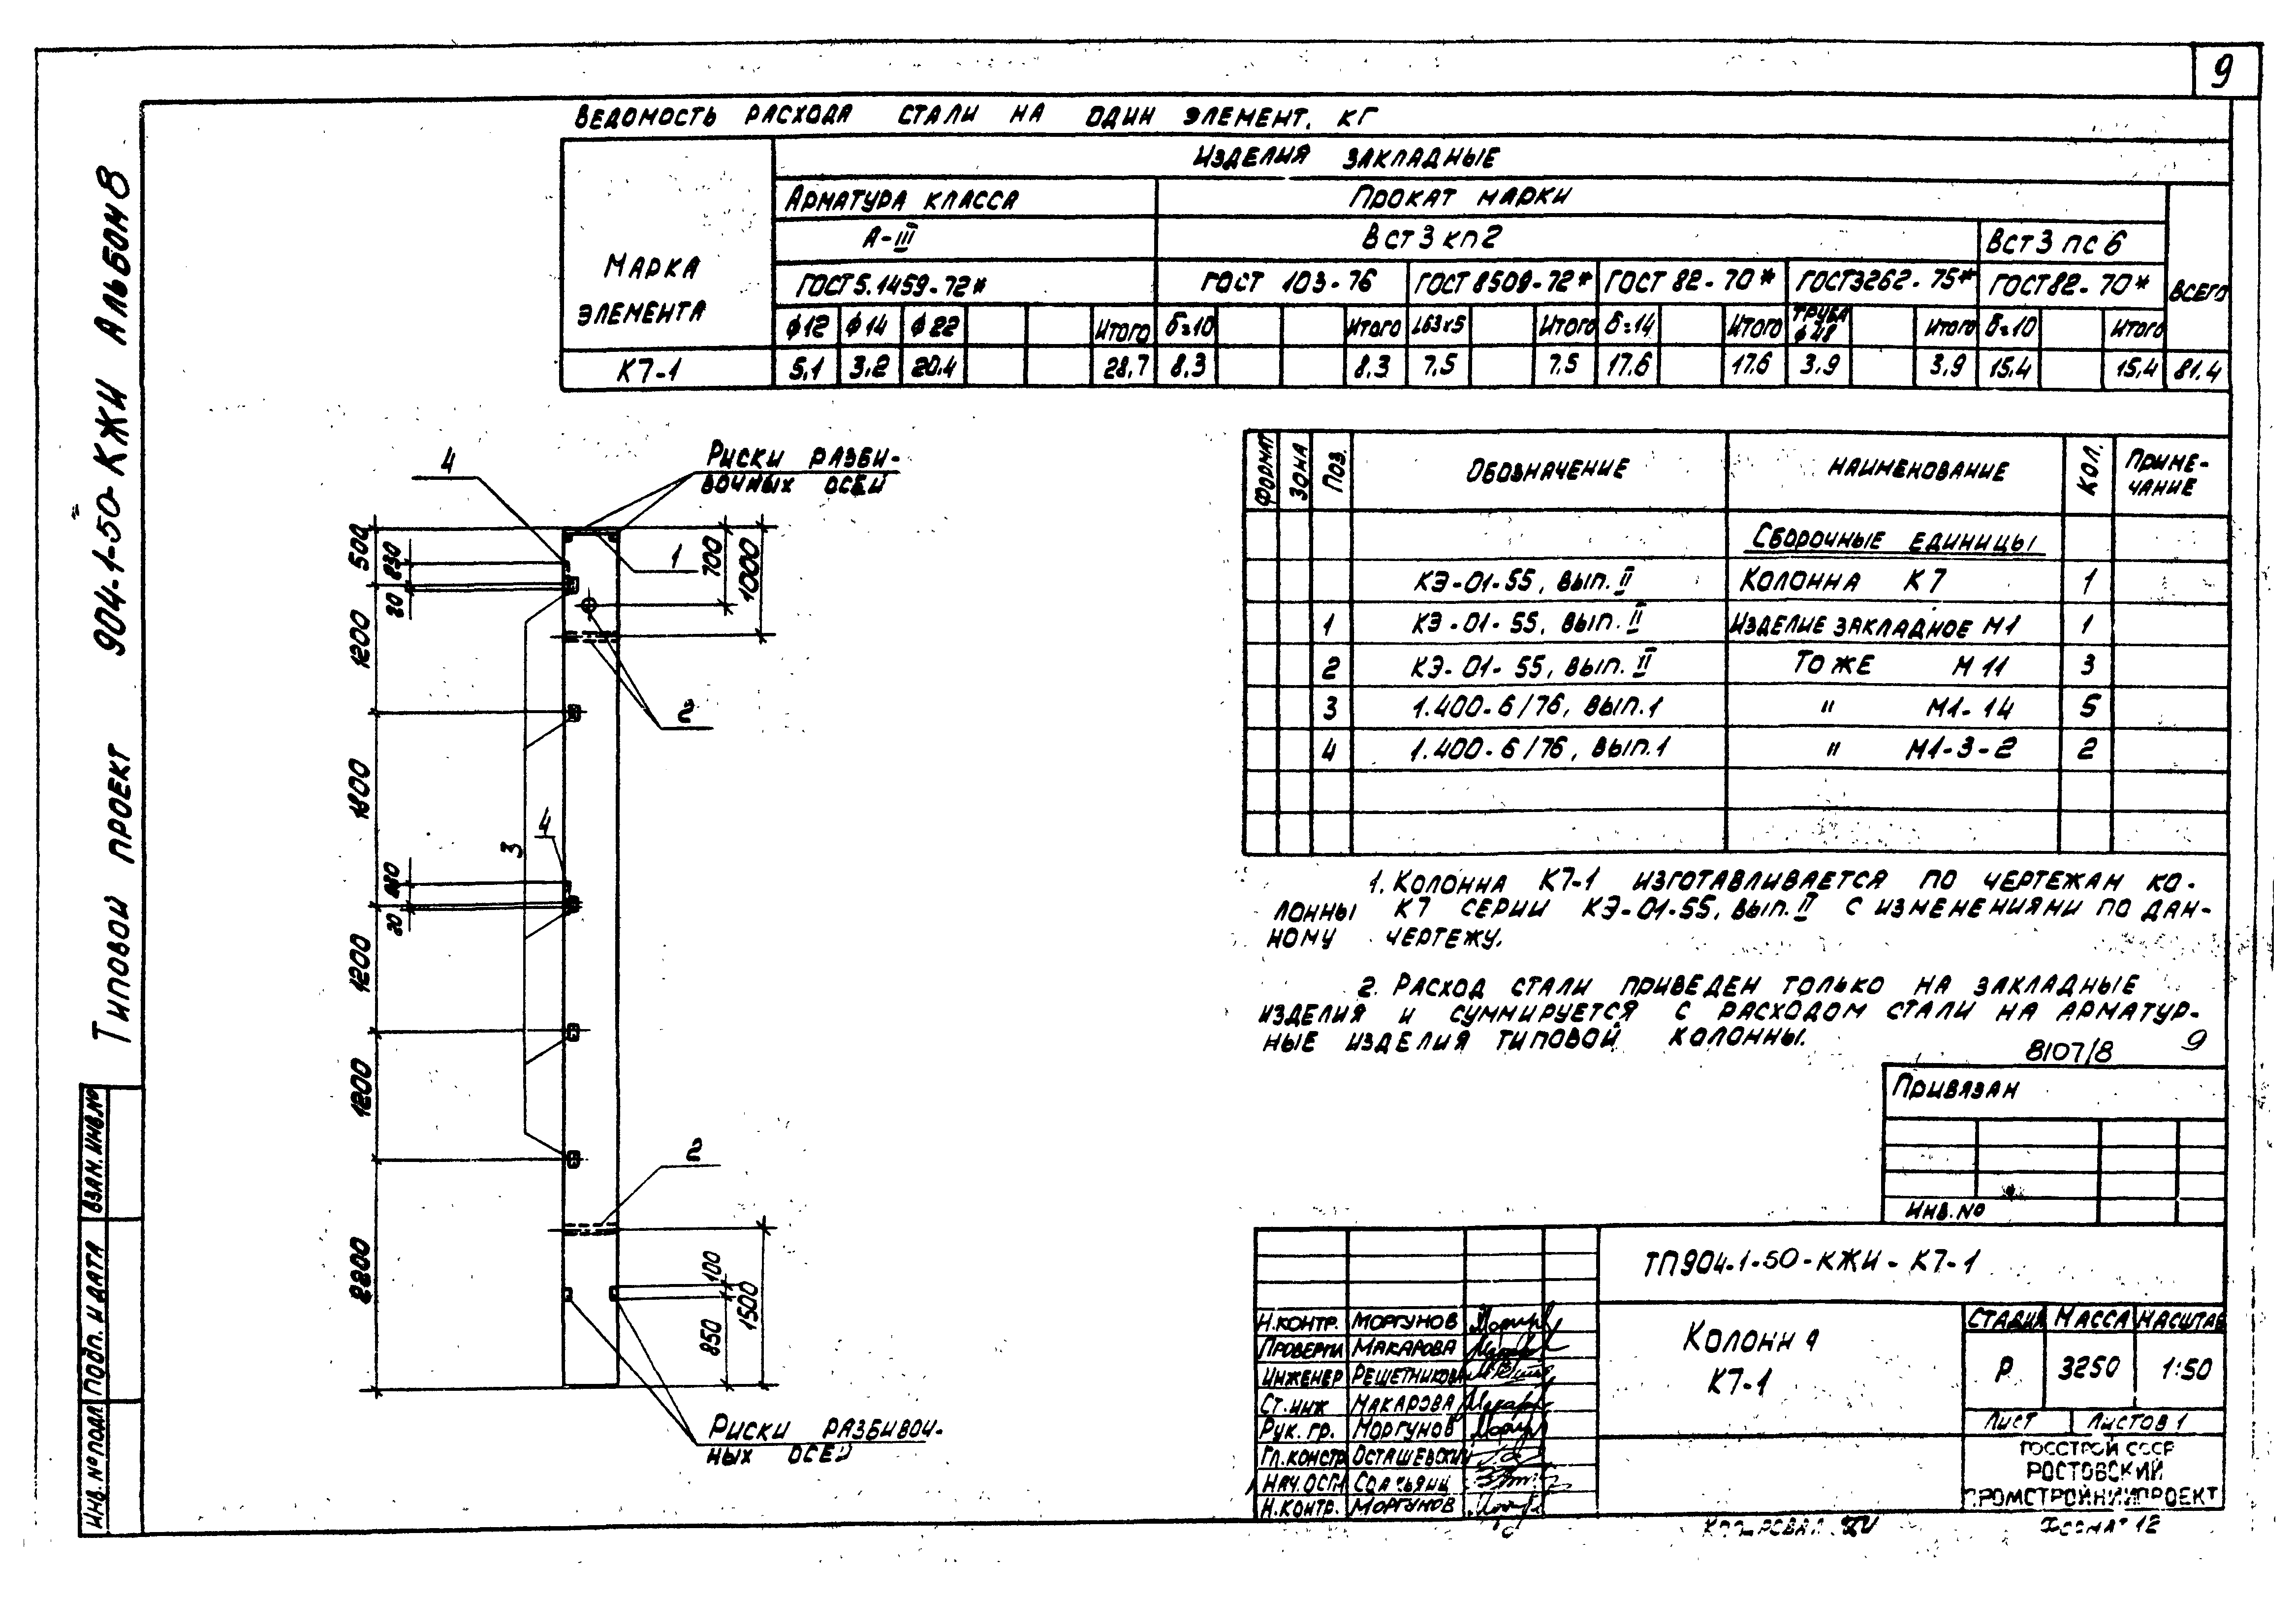 9
ВЕДОМОСТЬ РАСХОДА СТАЛИ НА ОДИН ЭЛЕМЕНТ, КГ
МАРКА ЭЛЕМЕНТА
ИЗДЕЛИЯ ЗАКЛАДНЫЕ
АРМАТУРА КЛАССА
ПРОКАТ МАРКИ
ВСЕГО
А-III
ВСТ3КП2
ВСТ3ПС6
ГОСТ5.1459-72*
ГОСТ 103-76
ГОСТ 8509-72*
ГОСТ 82-70*
ГОСТ3262-75*
ГОСТ82-70*
ф12 ф14 ф22 ИТОГО δ=10 ИТОГО L63x5 ИТОГО δ=14 ИТОГО ТРУБА ф48 ИТОГО δ=10 ИТОГО
К7-1 5,1 3,2 20,4 28,7 8.3 8.3 7,5 7,5 17.6 17.6 3.9 3.9 15.4 15,4 81.4
ТИПОВОЙ ПРОЕКТ 904-1-50-КЖИ АЛЬБОМ 8
РИСКИ РАЗБИ-
ВОЧНЫХ ОСЕЙ
4
1
500
20
700
1000
1200
2
1800
4
3
20
1200
1200
2
2800
100
850
1500
РИСКИ РАЗБИВОЧ-
НЫХ ОСЕЙ
ФОРМАТ ЗОНА ПОЗ. ОБОЗНАЧЕНИЕ НАИМЕНОВАНИЕ КОЛ. ПРИМЕ-
ЧАНИЕ
СБОРОЧНЫЕ ЕДИНИЦЫ
КЭ-01-55, ВЫП. II КОЛОННА К7 1
1 КЭ-01-55, ВЫП. II ИЗДЕЛИЕ ЗАКЛАДНОЕ М1 1
2 КЭ-01-55, ВЫП. II ТО ЖЕ М11 3
3 1.400-6/76, ВЫП.1 " М1-14 5
4 1.400-6/76, ВЫП.1 " М1-3-2 2
1. КОЛОННА К7-1 ИЗГОТАВЛИВАЕТСЯ ПО ЧЕРТЕЖАМ КО-
ЛОННЫ К7 СЕРИИ КЭ-01-55, ВЫП. II С ИЗМЕНЕНИЯМИ ПО ДАН-
НОМУ ЧЕРТЕЖУ.
2. РАСХОД СТАЛИ ПРИВЕДЕН ТОЛЬКО НА ЗАКЛАДНЫЕ
ИЗДЕЛИЯ И СУММИРУЕТСЯ С РАСХОДОМ СТАЛИ НА АРМАТУР-
НЫЕ ИЗДЕЛИЯ ТИПОВОЙ КОЛОННЫ.
8107/8 9
ПРИВЯЗАН
ИНВ.№
ТП904-1-50-КЖИ-К7-1
КОЛОННА
К7-1
СТАДИЯ МАССА МАСШТАБ
Р 3250 1:50
ЛИСТ ЛИСТОВ 1
ГОССТРОЙ СССР
РОСТОВСКИЙ
ПРОМСТРОЙНИИПРОЕКТ
Н.КОНТР. МОРГУНОВ
ПРОВЕРИЛ МАКАРОВА
ИНЖЕНЕР РЕШЕТНИКОВА
СТ.ИНЖ МАКАРОВА
РУК. ГР. МОРГУНОВ
ГЛ.КОНСТР ОСТАШЕВСКИЙ
Н.КОНТР. МОРГУНОВ
КОПИРОВАЛ
ФОРМАТ 12
ИНВ. № ПОДЛ ПОДП. И ДАТА ВЗАМ. ИНВ.№